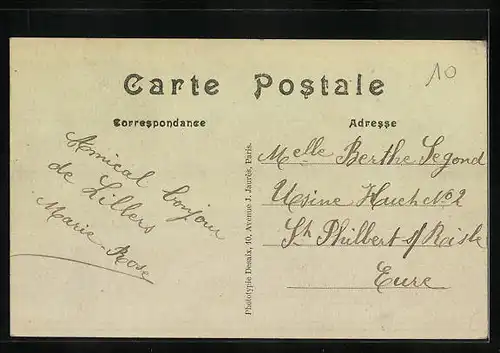 10
Carte Postale
Correspondance
Adresse
Amical bonjour
de Lillers
Marie-Rose
Phototypie Desaix, 40, Avenue J. Jaurès, Paris.
Melle Berthe Segond
Usine Huch No 2
St Philbert s/ Risle
Eure